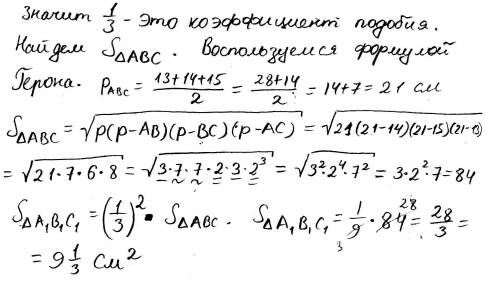 Значит 1/3 - это коэффициент подобия.
Найдем S△ABC. Воспользуемся формулой
Герона. P_ABC = (13+14+15)/2 = (28+14)/2 = 14+7 = 21 см
S△ABC = √(p(p-AB)(p-BC)(p-AC)) = √(21(21-14)(21-15)(21-13))
= √(21·7·6·8) = √(3·7·7·2·3·2³) = √(3²·2⁴·7²) = 3·2²·7 = 84
S△A₁B₁C₁ = (1/3)² · S△ABC. S△A₁B₁C₁ = 1/9 3 · 84 28 = 28/3 =
= 9 1/3 см²